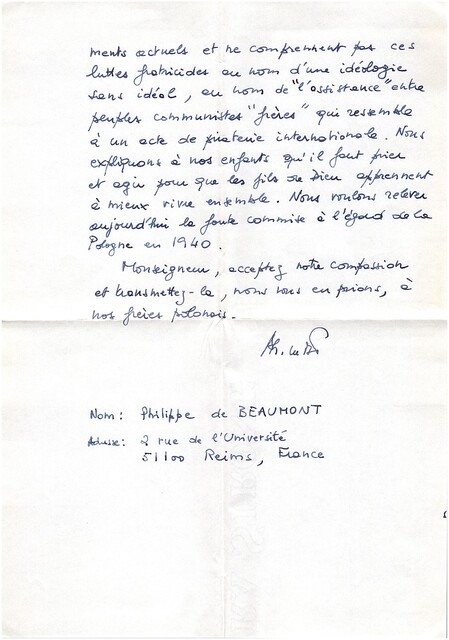 ments actuels et ne comprennent pas ces
luttes fratricides au nom d'une idéologie
sans idéal, au nom de "l'assistance" entre
peuples communistes "frères" qui ressemble
à un acte de piraterie internationale. Nous
expliquons à nos enfants qu'il faut prier
et agir pour que les fils de Dieu apprennent
à mieux vivre ensemble. Nous voulons relever
aujourd'hui la faute commise à l'égard de la
Pologne en 1940.
Monseigneur, acceptez notre compassion
et transmettez-la, nous vous en prions, à
nos frères polonais.
Nom: Philippe de BEAUMONT
Adresse: 2 rue de l'Université
51100 Reims, France